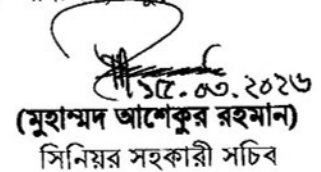 ১৫.০৩.২০২৬
(মুহাম্মদ আশেকুর রহমান)
সিনিয়র সহকারী সচিব